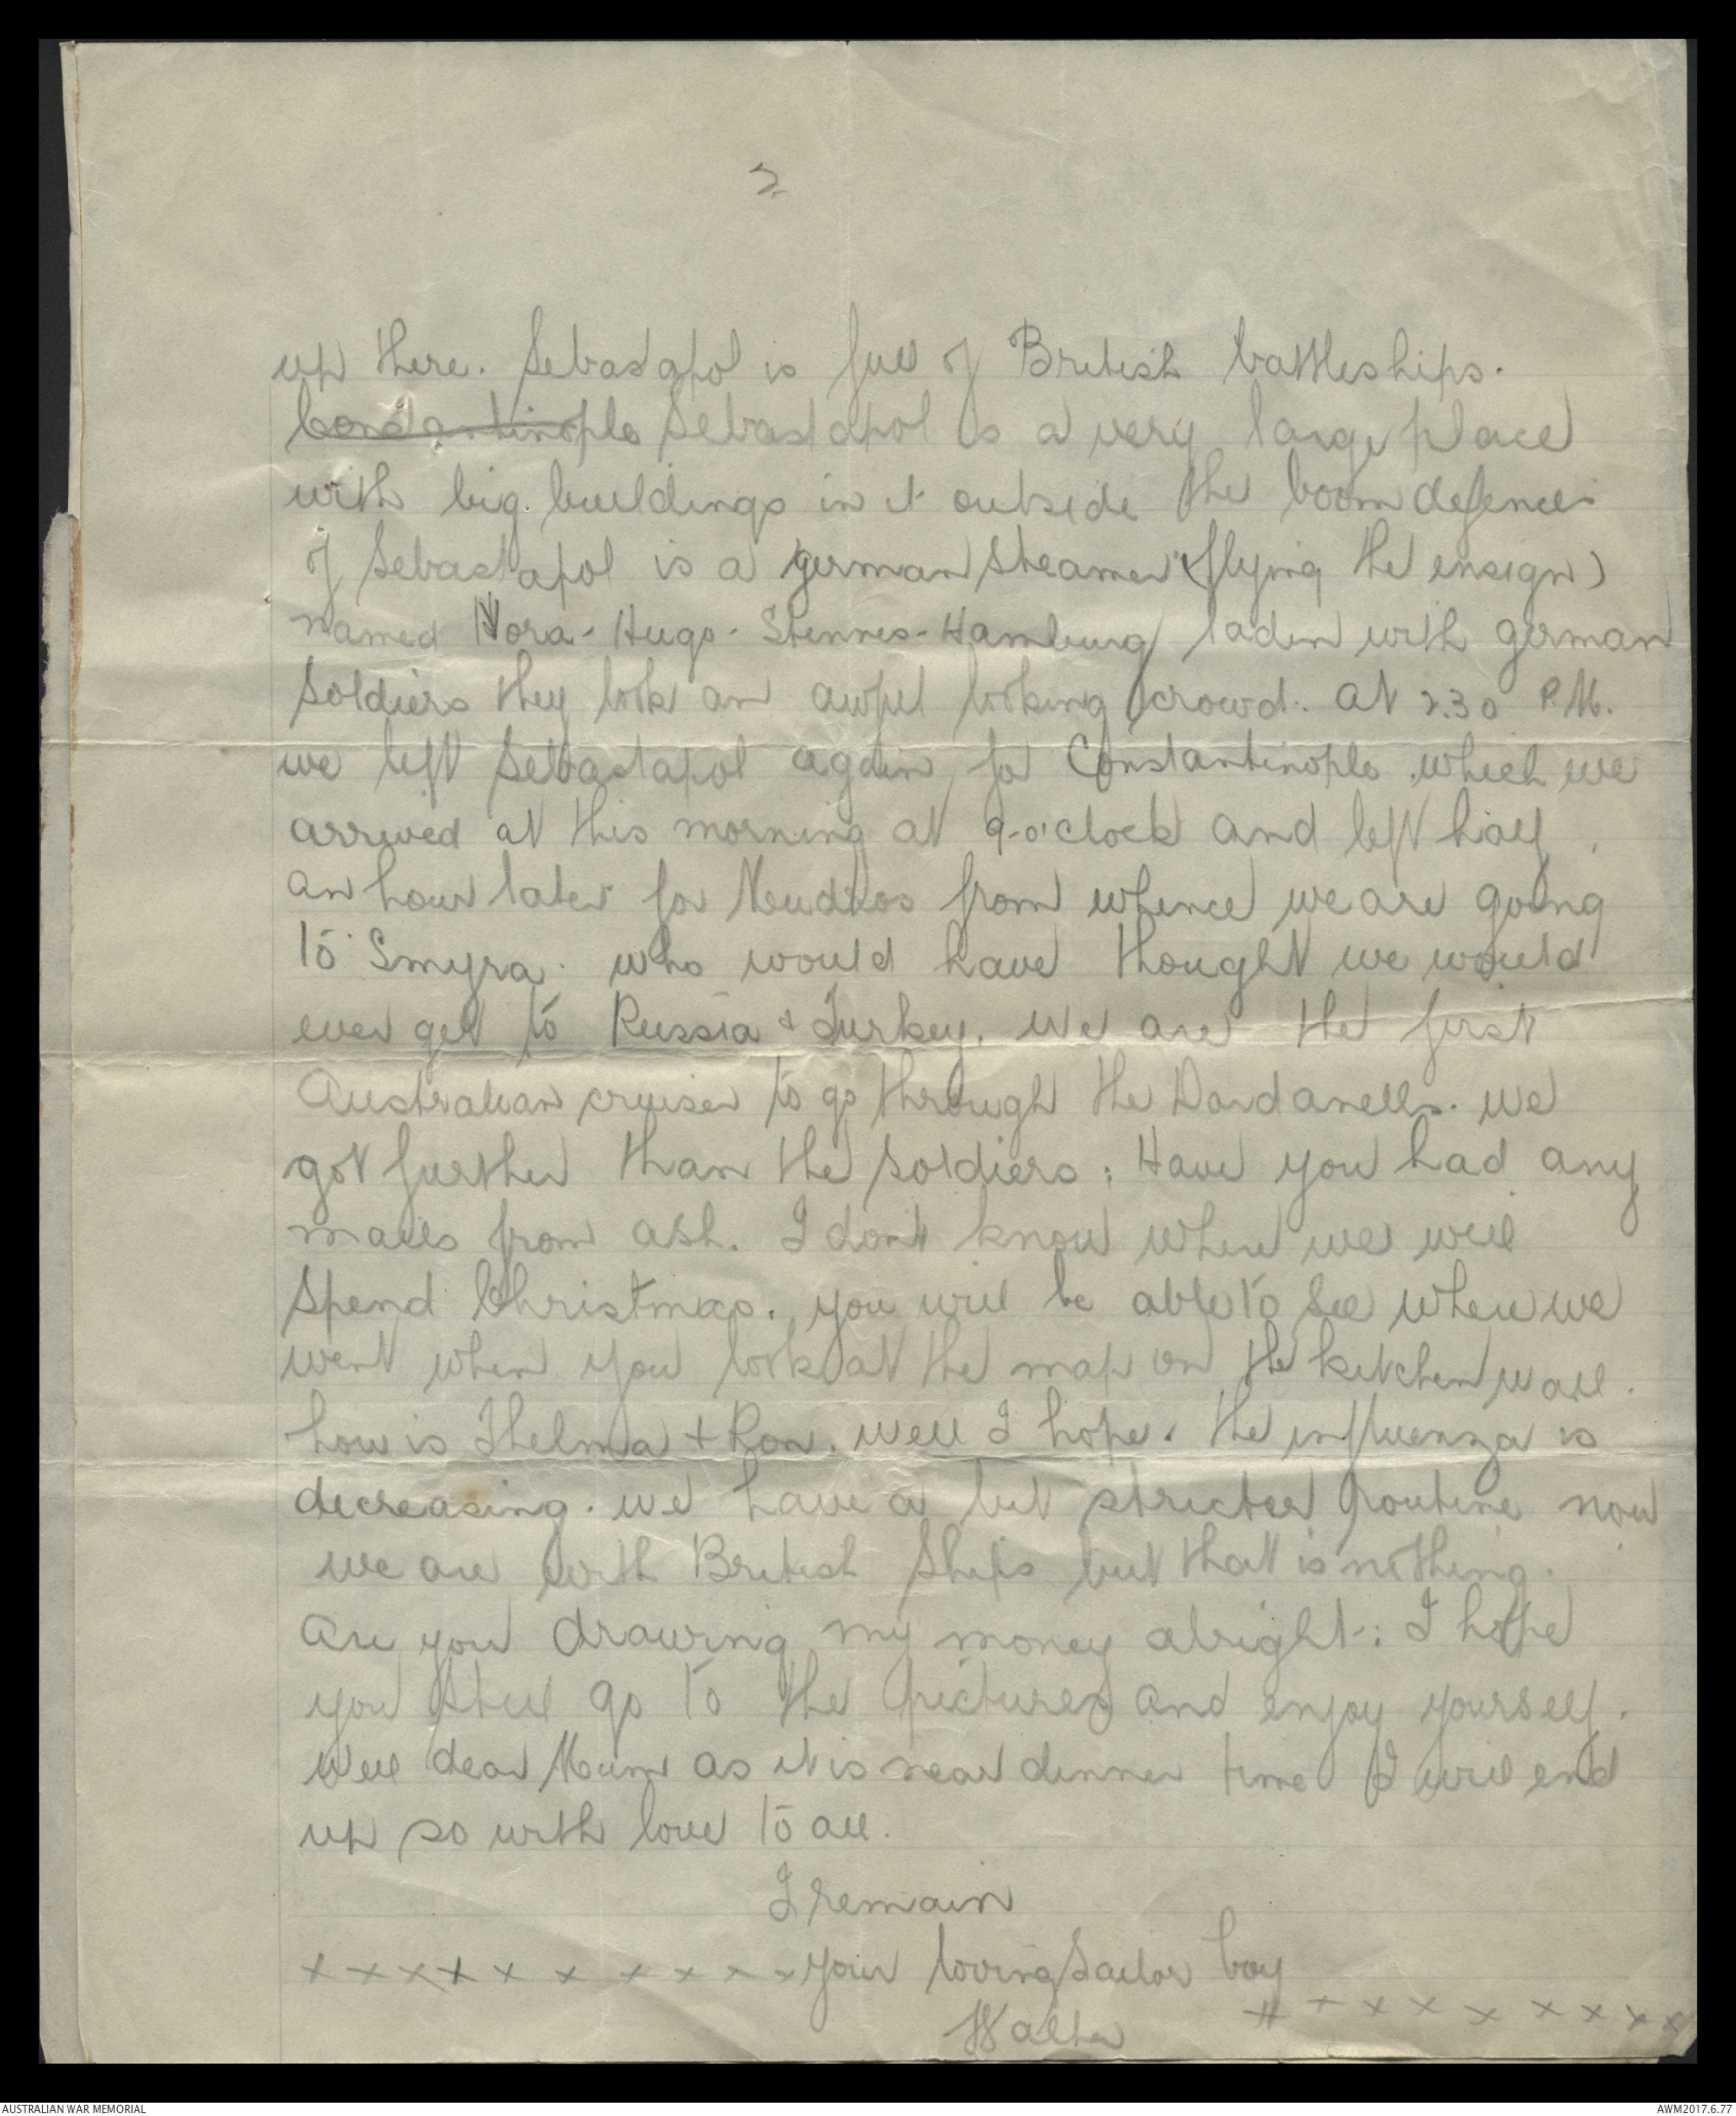 2
up there. Sebastapol is full of British battleships.
Constantinople Sebastapol is a very large place
with big buildings in it outside the boom defences
of Sebastapol is a german steamer (flying the ensign)
named Nora-Hugo-Stennes-Hamburg laden with german
soldiers they look an awful looking crowd. At 2.30 P.M.
we left Sebastapol again for Constantinople which we
arrived at this morning at 9-o'clock and left half
an hour later for Mudros from whence we are going
to Smyra. who would have thought we would
ever get to Russia & Turkey. We are the first
Australian cruiser to go through the Dardanells. we
got further than the soldiers: Have you had any
mails from Ash. I don't know where we will
spend Christmas. you will be able to see where we
went when you look at the map on the kitchen wall.
how is Thelma + Ron. well I hope. the influenza is
decreasing. we have a bit stricter routine now
we are with British ships but that is nothing.
Are you drawing my money alright: I hope
you still go to the pictures and enjoy yourself.
Well dear Mum as it is near dinner time I will end
up so with love to all.
I remain
x x x x x x x x x x your loving Sailor boy
Walter x x x x x x x x x
AUSTRALIAN WAR MEMORIAL
AWM2017.6.77